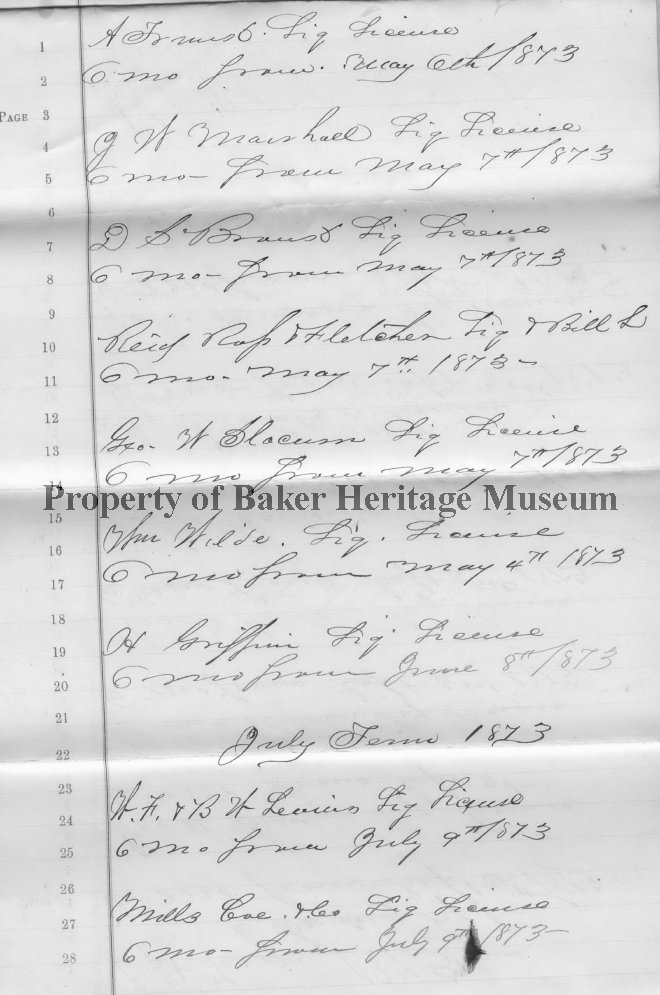 1
A Liq License
2
6 mo from May 6th / 1873
PAGE 3
4
J W Marshall Liq License
5
6 mo- from May 7th / 1873
6
7
D S Liq License
8
6 mo- from May 7th / 1873
9
10
Reid Ross & Fletcher Liq & Bill L
11
6 mo- May 7th 1873-
12
13
Geo- W Slocum Liq License
14
6 mo from May 7th / 1873
Property of Baker Heritage Museum
15
16
Wm Wilde. Liq. License
17
6 mo from May 4th 1873
18
19
H Griffin Liq. License
20
6 mo from June 8th / 1873
21
22
July Term 1873
23
24
W. F. & B W Liq License
25
6 mo from July 9th / 1873
26
27
Mills Coe & Co Liq License
28
6 mo- from July 9th / 1873-